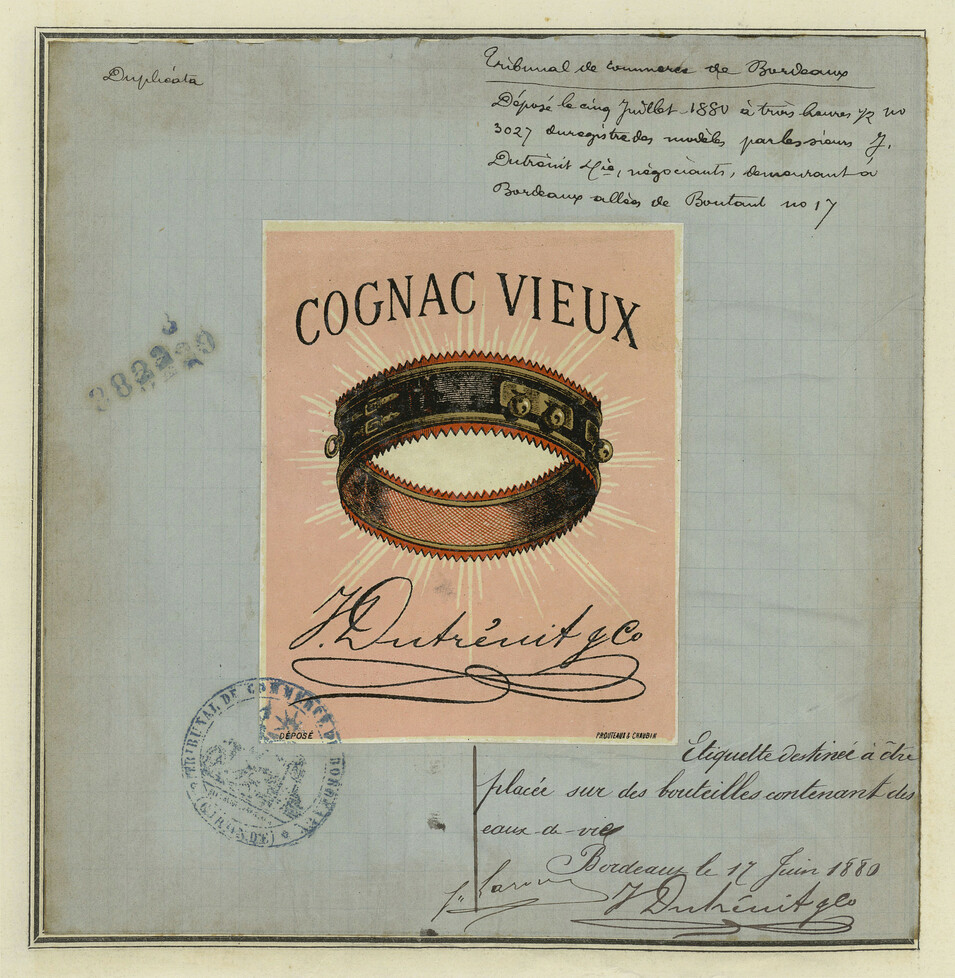 Duplicata
Tribunal de Commerce de Bordeaux
Déposé le cinq Juillet 1880 à trois heures 1/2 no
3027 du registre des modèles par les sieurs J.
Dutrénit & Cie, négociants, demeurant à
Bordeaux allées de Boutaut no 17
COGNAC VIEUX
J. Dutrénit & Co
DÉPOSÉ
PROUTEAUX & CHAUBIN
TRIBUNAL DE COMMERCE DE BORDEAUX
(GIRONDE)
Etiquette destinée à être
placée sur des bouteilles contenant des
eaux-de-vie
Bordeaux le 17 Juin 1880
J. Dutrénit & Co